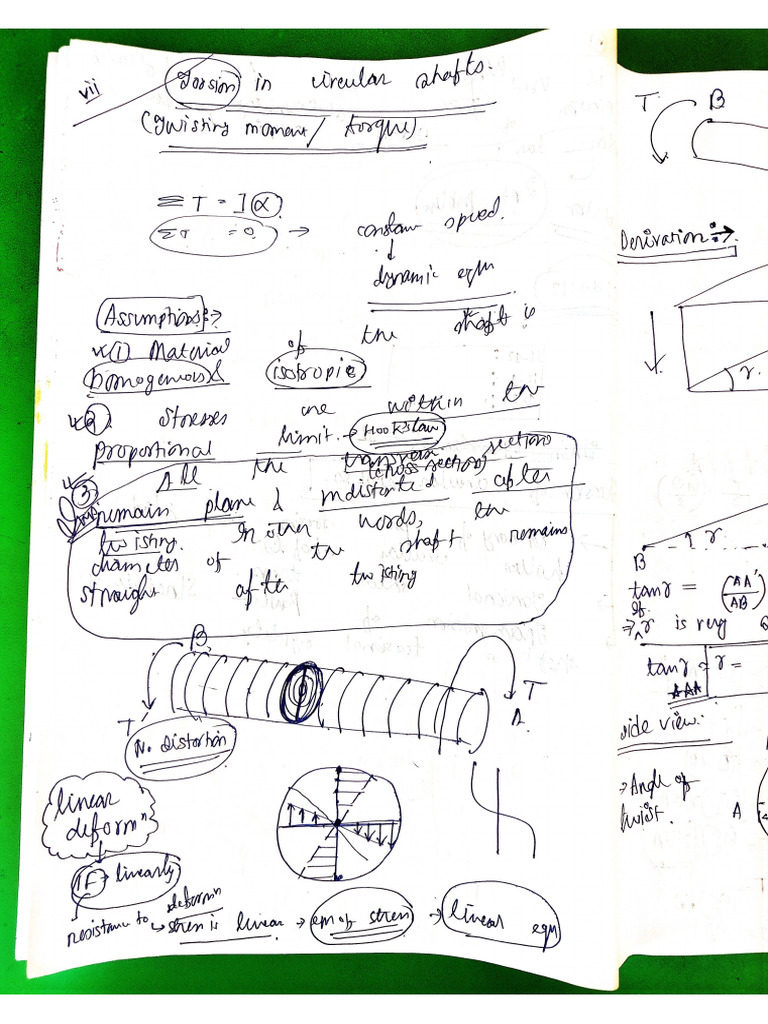 vii
Torsion in circular shafts.
(Twisting moment / torque)
ΣT = Iα
ΣT = 0 → constant speed.
↓
dynamic eqn
Assumptions:→
(1) Material of the shaft is
homogenous & isotropic
(2). Stresses are within the
proportional limit. → Hooks law
(3) All the transverse sections
(cross section)
remain plane & undistorted after
twisting. In other words, the
diameter of the shaft remains
straight after twisting
B
T
T
A
No distortion
linear
deformn
IF → linearly
resistance to deformn
→ stress is linear → eqn of stress → linear eqn
T B
Derivation:→
r.
r
B
tanr = (AA'/AB)
⇒ if r is very
tanr = r =
side view.
→ Angle of
twist.
A